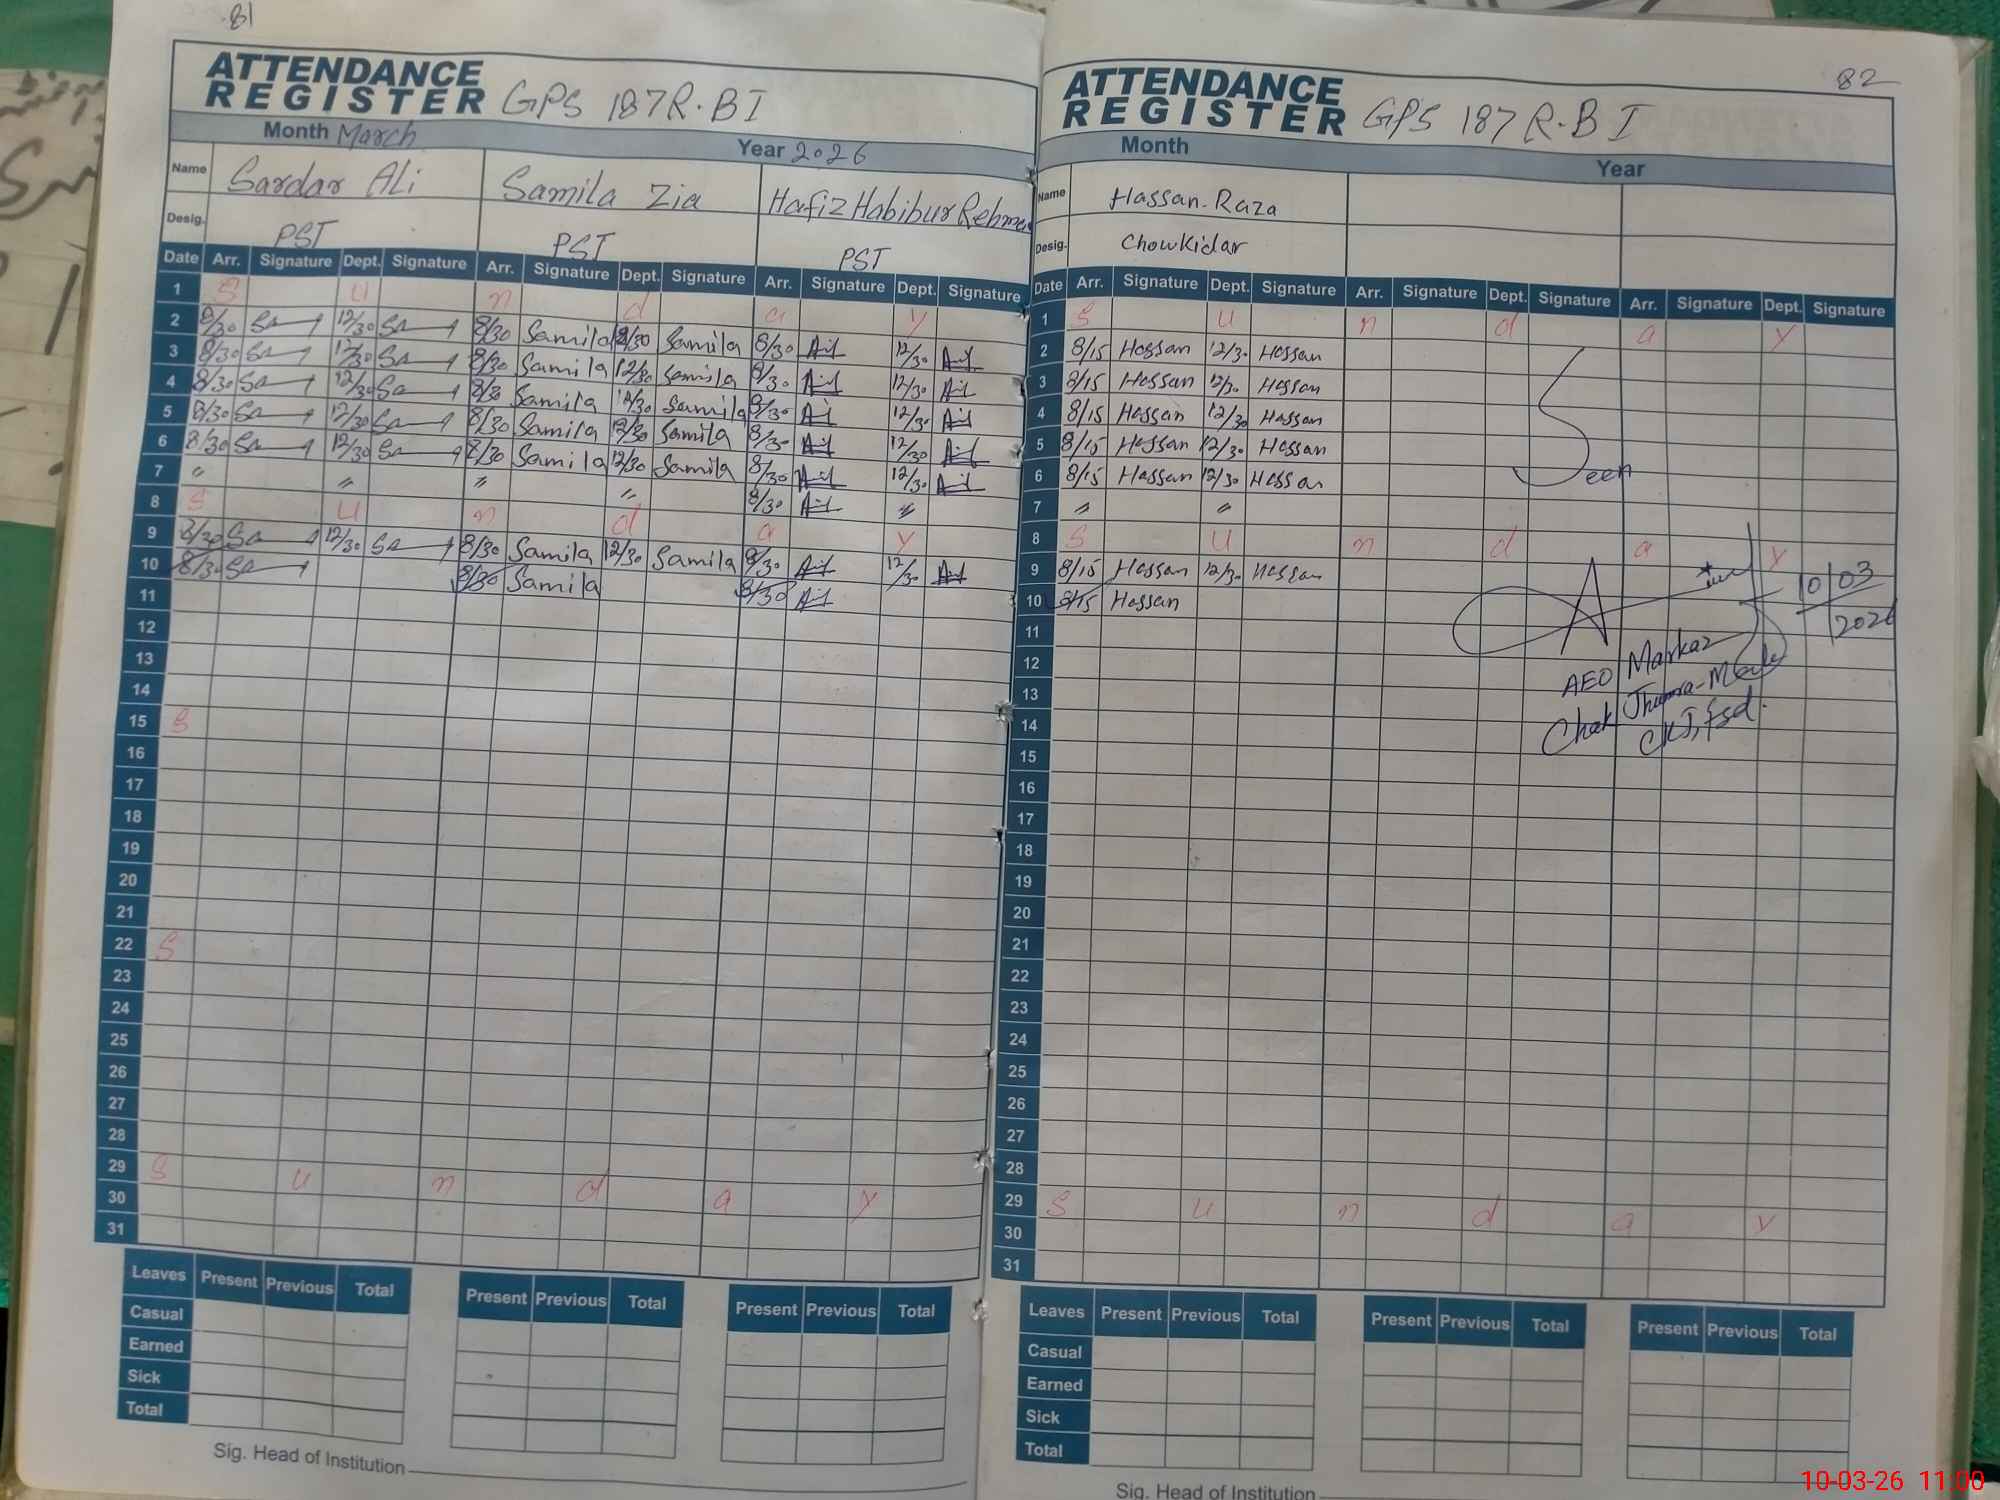 81
ATTENDANCE
REGISTER GPS 187R.B I
Month March Year 2026
Name Sardar Ali Samila Zia Hafiz Habibur Rehma
Desig. PST PST PST
Date Arr. Signature Dept. Signature Arr. Signature Dept. Signature Arr. Signature Dept. Signature
1 S u n d a y
2 8/30 Sa 12/30 Sa 8/30 Samila 12/30 Samila 8/30 12/30
3 8/30 Sa 12/30 Sa 8/30 Samila 12/30 Samila 8/30 12/30
4 8/30 Sa 12/30 Sa 8/30 Samila 12/30 Samila 8/30 12/30
5 8/30 Sa 12/30 Sa 8/30 Samila 12/30 Samila 8/30 12/30
6 8/30 Sa 12/30 Sa 8/30 Samila 12/30 Samila 8/30 12/30
7 " " " " 8/30 "
8 S u n d a y
9 8/30 Sa 12/30 Sa 8/30 Samila 12/30 Samila 8/30 12/30
10 8/30 Sa 8/30 Samila 8/30
11
12
13
14
15 S
16
17
18
19
20
21
22 S
23
24
25
26
27
28
29 S u n d a y
30
31
Leaves Present Previous Total Present Previous Total Present Previous Total
Casual
Earned
Sick
Total
Sig. Head of Institution
82
ATTENDANCE
REGISTER GPS 187 R.B I
Month Year
Name Hassan Raza
Desig. Chowkidar
Date Arr. Signature Dept. Signature Arr. Signature Dept. Signature Arr. Signature Dept. Signature
1 S u n d a y
2 8/15 Hassan 12/30 Hassan
3 8/15 Hassan 12/30 Hassan
4 8/15 Hassan 12/30 Hassan
5 8/15 Hassan 12/30 Hassan
6 8/15 Hassan 12/30 Hassan
Seen
7 " "
8 S u n d a y
9 8/15 Hassan 12/30 Hassan
10 8/15 Hassan
10/03
2026
AEO Markaz
Chak Jhumra-Male
CKJ, fsd.
11
12
13
14
15
16
17
18
19
20
21
22
23
24
25
26
27
28
29 S u n d a y
30
31
Leaves Present Previous Total Present Previous Total Present Previous Total
Casual
Earned
Sick
Total
Sig. Head of Institution
10-03-26 11:00